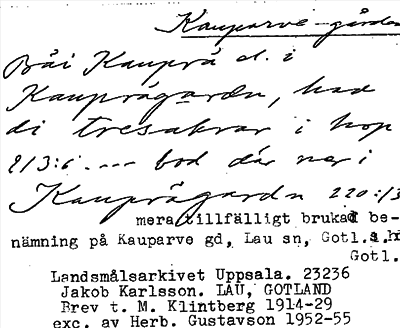 Kauparve-gården
Bäi Kauprä d. i
Kauprägardn, had
di tresakrar i hop
213:6. --- bod där ner i
Kauprägardn 220:13
mera tillfälligt brukad be-
nämning på Kauparve gd, Lau sn, Gotl.s.h
Gotl.
Landsmålsarkivet Uppsala. 23236
Jakob Karlsson. LAU, GOTLAND
Brev t. M. Klintberg 1914-29
exc. av Herb. Gustavson 1952-55